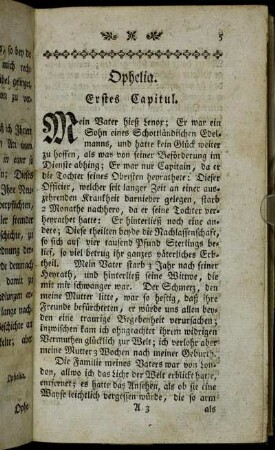 5
Ophelia.
Erstes Capitul.
Mein Vater hieß Lenox; Er war ein
Sohn eines Schottländischen Edel-
manns, und hatte kein Glück weiter
zu hoffen, als was von seiner Beförderung im
Dienste abhing; Er war nur Capitain, da er
die Tochter seines Obersten heyrathete: Dieser
Officier, welcher seit langer Zeit an einer aus-
zehrenden Krankheit darnieder gelegen, starb
2 Monathe nachhero, da er seine Tochter ver-
heyrathet hatte; Er hinterließ noch eine an-
dere; Diese theilten beyde die Nachlassenschaft,
so sich auf vier tausend Pfund Sterlings be-
lief, so viel betrug ihr ganzes väterliches Erb-
theil. Mein Vater starb 3 Jahr nach seiner
Heyrath, und hinterließ seine Wittwe, die
mit mir schwanger war. Der Schmerz, den
meine Mutter litte, war so heftig, daß ihre
Freunde befürchteten, er würde uns allen bey-
den eine traurige Begebenheit verursachen;
inzwischen kam ich ohngeachtet ihrem widrigen
Vermuthen glücklich zur Welt; ich verlohr aber
meine Mutter 3 Wochen nach meiner Geburth.
Die Familie meines Vaters war von Lon-
don, allwo ich das Licht der Welt erblickt hatte,
entfernet; es hatte das Ansehen, als ob sie eine
Wayse leichtlich vergessen würde, die so arm
A 3 als